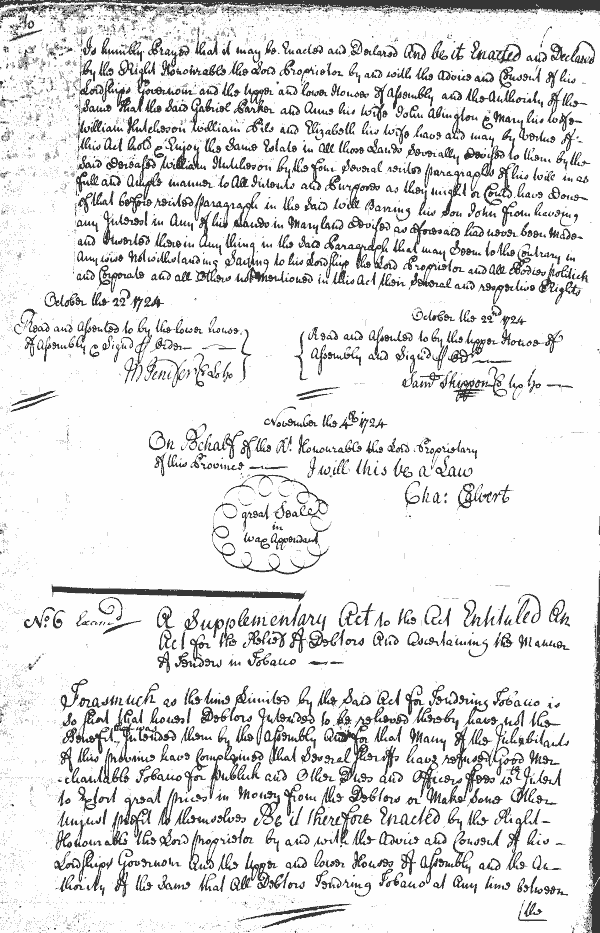 10
Is humbly Prayed that it may be Enacted and Declared And be it Enacted and Declared
by the Right Honourable the Lord Proprietor by and with the Advice and Consent of his
Lordships Governour and the upper and lower Houses of Assembly and the Authority of the
Same that the Said Gabriel Parker and Anne his wife John Abington & Mary his wife
William Hutcheson William Fife and Elizabeth his wife have and may by vertue of
this Act hold & Enjoy the Same Estate in All those Lands Severally Devised to them by the
Said Deceased William Hutcheson by the four Several recited paragraphs of his will in as
full and Ample manner to All Intents and Purposes as they might or Could have Done
if that before recited paragraph in the Said will Barring his Son John from haveing
any Interest in Any of his Lands in Maryland Devised as aforesaid had never been Made
and Inserted therein Any thing in the Said Paragraph that may Seem to the Contrary in
Any wise Notwithstanding Saving to his Lordship the Lord Proprietor and All Bodies politick
and Corporate and all Others not Mentioned in this Act their Several and respective Rights
October the 22d 1724
Read and Assented to by the lower house
of Assembly & Signd p Order
M Jenifer Cl Lo ho
October the 22nd 1724
Read and Assented to by the upper House of
Assembly and Signd p Ordr
Saml Skippon Cl up ho
November the 4th 1724
On Behalf of the Rt Honourable the Lord Proprietary
of this Province I will this be a Law
Cha: Calvert
great Seale
in
wax Appendant
No 6 Examd A Supplementary Act to the Act Entituled An
Act for the Relief of Debtors And Ascertaining the Manner
of Tenders in Tobaco
Forasmuch as the time Limited by the Said Act for Tendering Tobaco is
So Short that honest Debtors Intended to be relieved thereby have not the
Benefit Intended them by the Assembly And for that Many of the Inhabitants
of this province have Complained that Several Sheriffs have refused Good Mer
chantable Tobaco for publick and Other Dues and Officers fees wth Intent
to Extort great prices in Money from the Debtors or Make Some Other
unjust profit to themselves Be it therefore Enacted by the Right
Honourable the Lord proprietor by and with the Advice and Consent of his
Lordships Governour And the upper and lower Houses of Assembly and the Au
thority of the Same that All Debtors Tendring Tobaco at Any time between
the